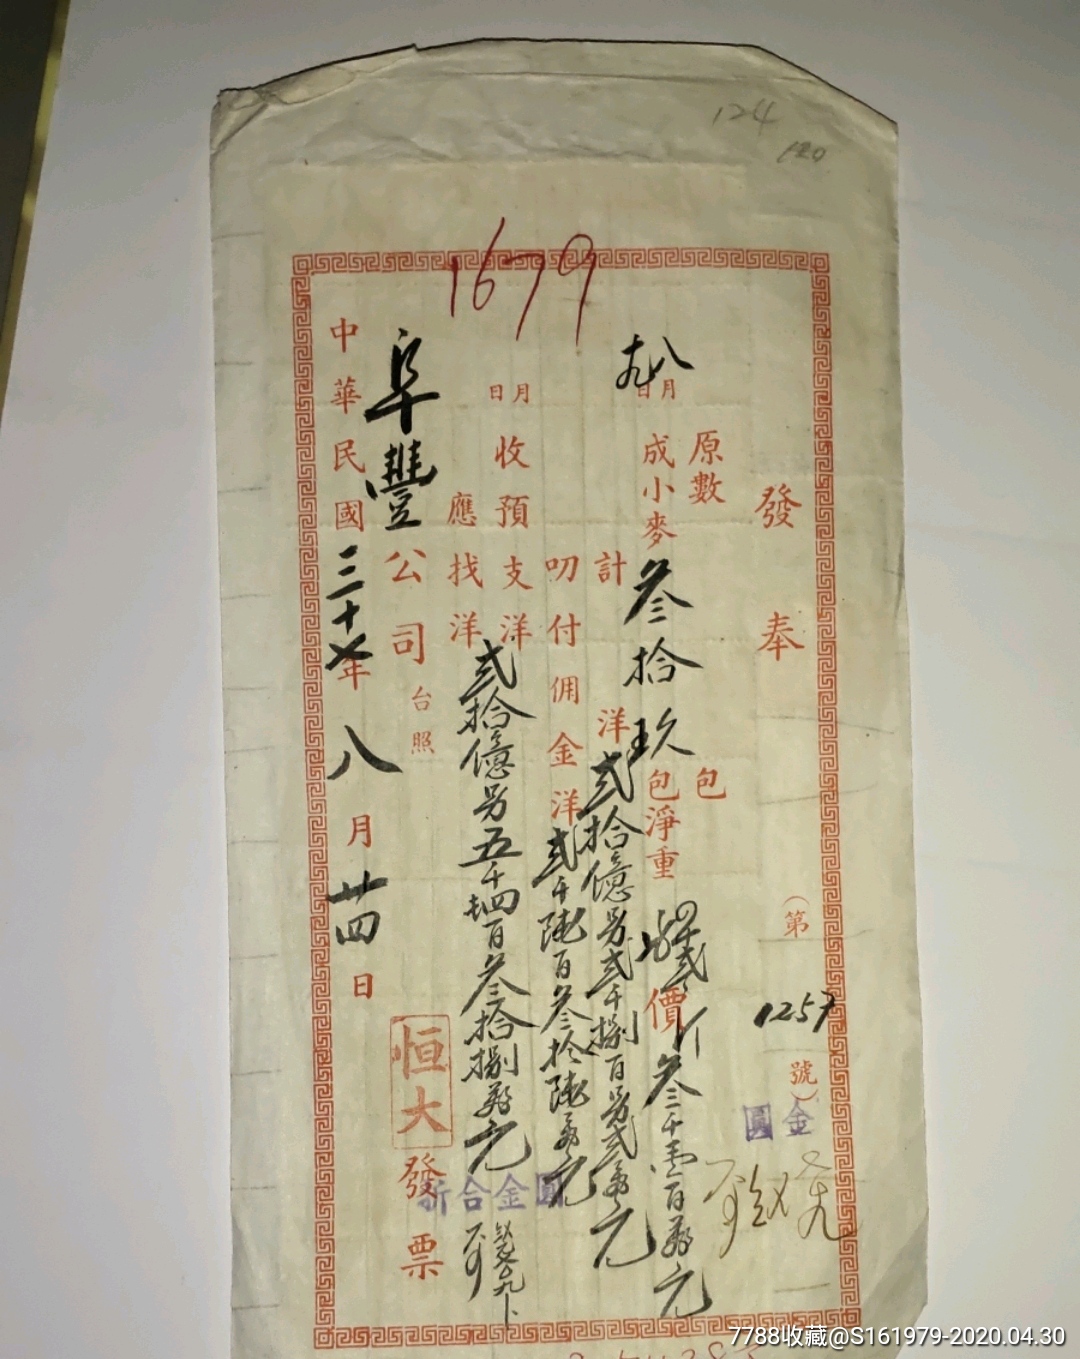 124
120
1679
發奉
(第 1257 號)
金圓
原數 包
八月九日
成小麥叁拾玖包淨重
價叁千壹百萬元
計洋貳拾億另貳千捌百另貳萬元
叨付佣金洋貳千陸百叁拾陸萬元
月日
收預支洋
應找洋貳拾億另五千四百叁拾捌萬元
折合金圓
阜豐公司台照
恒大發票
中華民國三十七年八月廿四日
7788收藏@S161979-2020.04.30